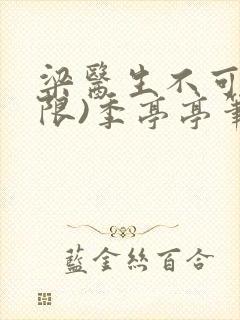 梁醫生不可
限)季亭亭筆
藍金絲百合